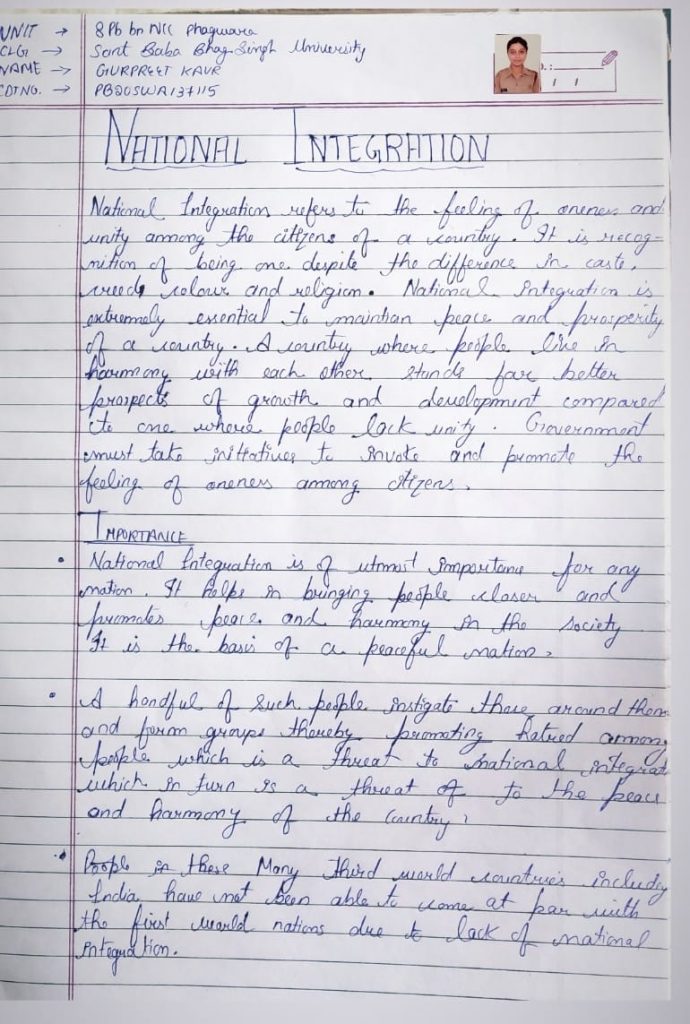 UNIT → 8 Pb bn NCC Phagwara
CLG → Sant Baba Bhag Singh University
NAME → GURPREET KAUR
CDT NO. → PB20SWA137115
NATIONAL INTEGRATION
National Integration refers to the feeling of oneness and
unity among the citizens of a country. It is recog-
nition of being one despite the difference in caste,
creed, colour and religion. National integration is
extremely essential to maintian peace and prosperity
of a country. A country where people live in
harmony with each other stands far better
prospects of growth and development compared
to one where people lack unity. Government
must take initiatives to invoke and promote the
feeling of oneness among citizens.
IMPORTANCE
• National Integration is of utmost importance for any
nation. It helps in bringing people closer and
promotes peace and harmony in the society
It is the basis of a peaceful nation.
• A handful of such people instigate those around them
and form groups thereby promoting hatred among
people which is a threat to national integrat
which in turn is a threat of to the peace
and harmony of the country.
• People in these Many third world countries including
India have not been able to come at par with
the first world nations due to lack of national
integration.